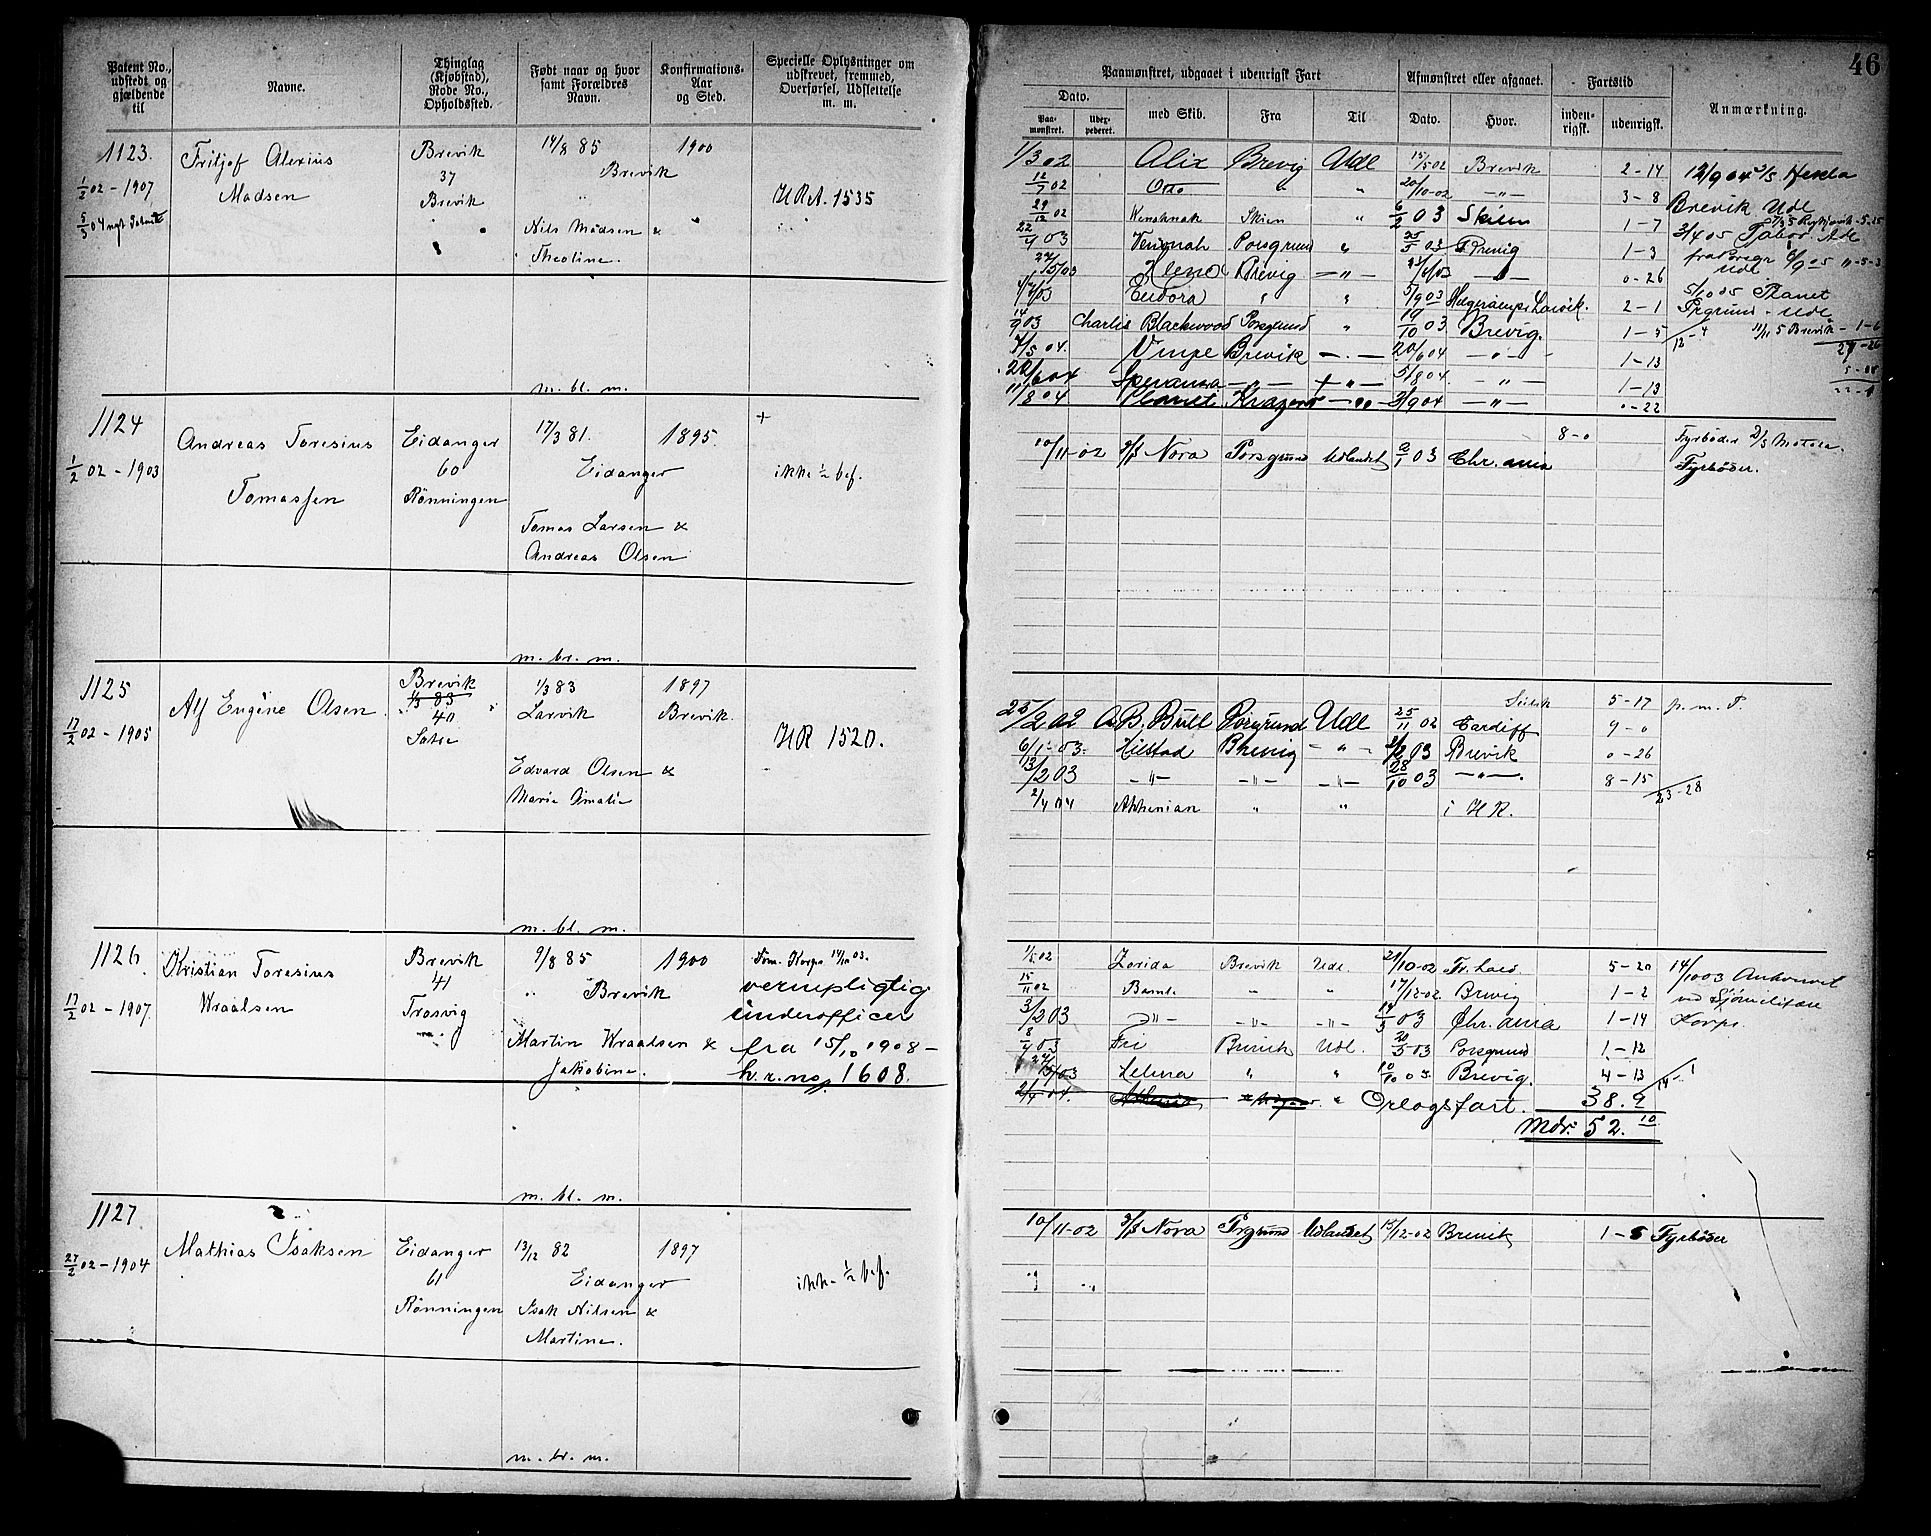 46
Patent No., udstedt og gjældende til
Navne.
Thinglag (Kjøbstad), Rode No., Opholdssted.
Født naar og hvor samt Forældres Navn.
Konfirmations-Aar og Sted.
Specielle Oplysninger om udskrevet, fremmed, Overførsel, Udslettelse m. m.
Paamønstret, udgaaet i udenrigsk Fart
Dato.
Paa-mønstret.
Uder-pederet.
med Skib.
Fra
Til
Afmønstret eller afgaaet.
Dato.
Hvor.
Fartstid
inden-rigsk.
udenrigsk.
Anmærkning.
1123.
1/2 02 - 1907
Fritjof Alexius
Madsen
Brevik
37
Brevik
14/8 85
Brevik
Nils Madsen &
Theoline.
1900
H R A. 1535
m. bl. m.
1/3 02 Alix Brevig Udl 15/5 02 Brevik 2 - 14
12/7 02 Otto " " 20/10-02 -"- 3 - 8
29/12 02 Skien " 6/2 03 Skien 1 - 7
22/4 03 Porsgrund " 25/5 03 Brevig 1 - 3
27/5 03 Brevig -"- -"- 0 - 26
Eudora " " 5/9 03 Larvik. 2 - 1
14/9 03 Charlis Blackwood Porsgrund " 19/10 03 Brevig. 1 - 5
7/5 04. Brevik -"- 20/6 04 -"- 1 - 13
22/6 04 Speranza -"- -"- 5/8 04. -"- 1 - 13
11/8 04 Planet Kragerø -"- 3/9 04 -"- 0 - 22
Brevik Udl
3/4 05 Tabor Udl
5/10 05 Planet
Prgrund - Udl
11/11 5 Brevik - 1 - 6
1124
1/2 02 - 1903
Andreas Toresius
Tomassen
Eidanger
60
Rönningen
17/3 81.
Eidanger
Tomas Larsen &
Andreas Olsen
1895.
+
ikke 1/2 bef.
m. br. m.
10/11-02 D/S Nora Porsgrund Udlandet 2/1 03 Chr.ania 8 - 0
Fyrbøder
Fyrbøder.
1125
17/2 02 - 1905
Alf Eugène Olsen
Brevik
1/3 83
40
1/3 83
Larvik
Edvard Olsen &
Marie Amalie
1897
Brevik.
H R 1520.
m. bl. m.
5 - 17 p. m. P.
25/2 02 A. B. Bull Porsgrund Udl 25/11 02 Cardiff 9 - 0
6/1-03. Hilstad Brevig -"- 2/2 03 Brevik 0 - 26
13/2 03 -"- -"- -"- 28/10 03 -"- 8 - 15
23 - 28
2/4 04 Athenian " " i H R.
1126
17/2 02 - 1907
Kristian Toresius
Kraalsen
Brevik
41
Trosvig
9/8 85
" Brevik
Martin Kraalsen &
Jakobine.
1900
Vernepligtig
underofficer
fra 15/10 1908 -
h.r.no 1608.
m. bl. m.
1/5 02 Zorida Brevik Udl. 21/10-02 5 - 20
15/11 02 Bamle " " 17/12-02 Brevig 1 - 2
3/2 03 -"- -"- -"- 14/3 03 Chr.ania 1 - 14
8/4 03 Fri Brevik Udl. 20/5 03 Porsgrund 1 - 12
27/5 03 Helena " " 10/10 03. Brevig. 4 - 13
2/4 04. " Orlogsfart. 38. 9
Mdr: 52. 10
14/10 03
Korps.
1127
27/2 02 - 1904
Mathias Isaksen
Eidanger
61
Rönningen
13/12 82
Eidanger
Isak Nilsen &
Martine.
1897
ikke 1/2 bef.
m. br. m.
10/11-02 D/S Nora Prgrund Udlandet 15/12-02 Brevik 1 - 5 Fyrbøder